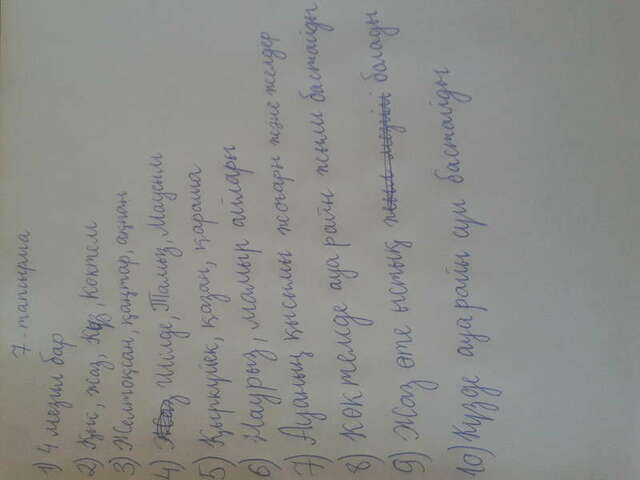 7-тапсырма
1) 4 мезгіл бар
2) Қыс, жаз, Күз, Көктем
3) Желтоқсан, қаңтар, ақпан
4) Шілде, Тамыз, Маусым
5) Қыркүйек, қазан, қараша
6) Наурыз, мамыр айлары
7) Ауаның қысымы жоғары және желдер
8) Көктемде ауа райы жылы бастайды
9) Жаз өте ыстық болады
10) Күзде ауа райы суи бастайды